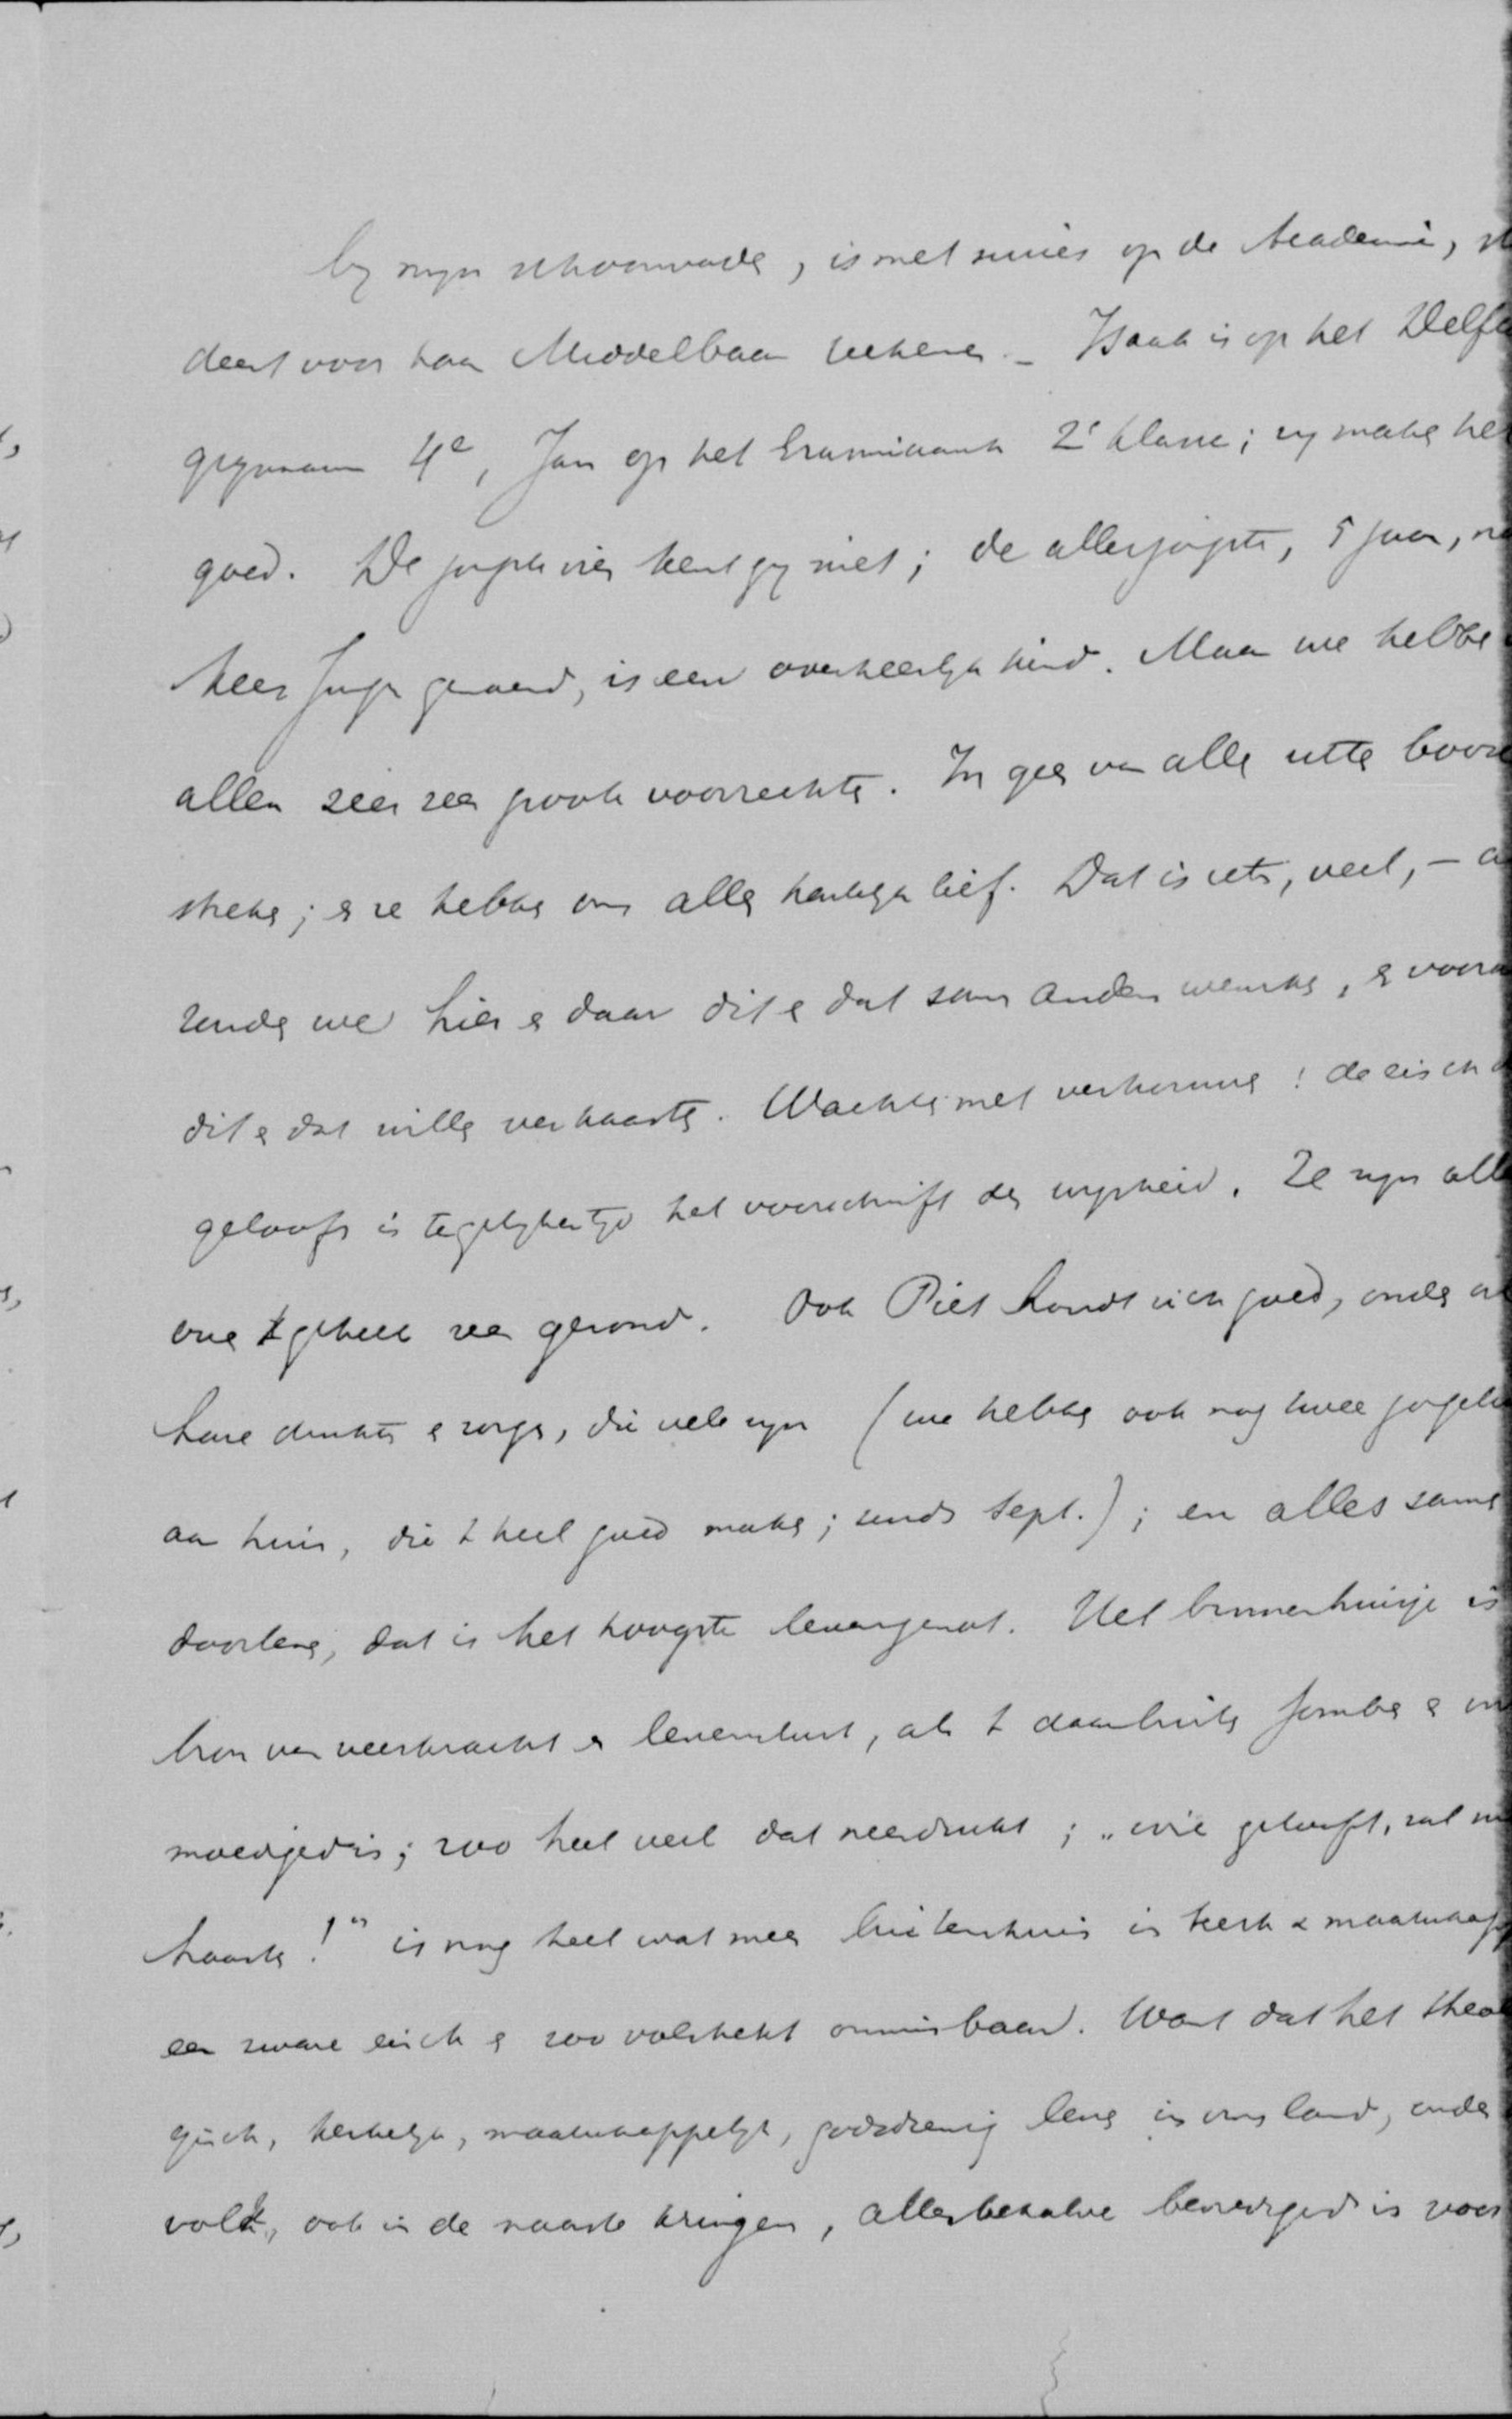 by mijn schoonvader, is met succes op de Academie, st
deert voor haar Middelbaar teekenen. – Izaak is op het Delft
gymnasium 4e, Jan op het Erasmiaansch 2e klasse; zij maken het
goed. De jongste vier kent gij niet; de allerjongste, 5 jaar, na
heer Junge genaamd, is een overheerlijk kind. Maar we hebben
allen zeer zeer groote voorrechten. In geen van allen zitten booze
streken; en ze hebben ons allen hartelijk lief. Dat is iets, veel, – a
zouden we hier en daar dit en dat soms anders wenschen, en voora
dit en dat willen verhaasten. Wachten met vertrouwen! de eisch d
geloofs is tegelijkertijd het voorschrift der wijsheid. Ze zijn alle
over 't geheel zeer gezond. Ook Piet houdt zich goed, onder al
hare drukten en zorgen, die vele zijn (we hebben ook nog twee jongelui
aan huis, die 't heel goed maken; sinds Sept.); en alles samen
doorleven, dat is het hoogste levensgenot. Het binnenhuisje is
bron van veerkracht en levenslust, als 't daarbuiten somber en on
moedigend is; zoo heel veel dat neerdrukt; „wie gelooft, zal ni
haasten!" is nog heel wat meer buitenshuis in kerk & maatschapp
een zware eisch en zoo volstrekt onmisbaar. Want dat het theol
gisch, kerkelijk, maatschappelijk, godsdienstig leven in ons land, onder
volk, ook in de naaste kringen, allesbehalve bevredigend is voor